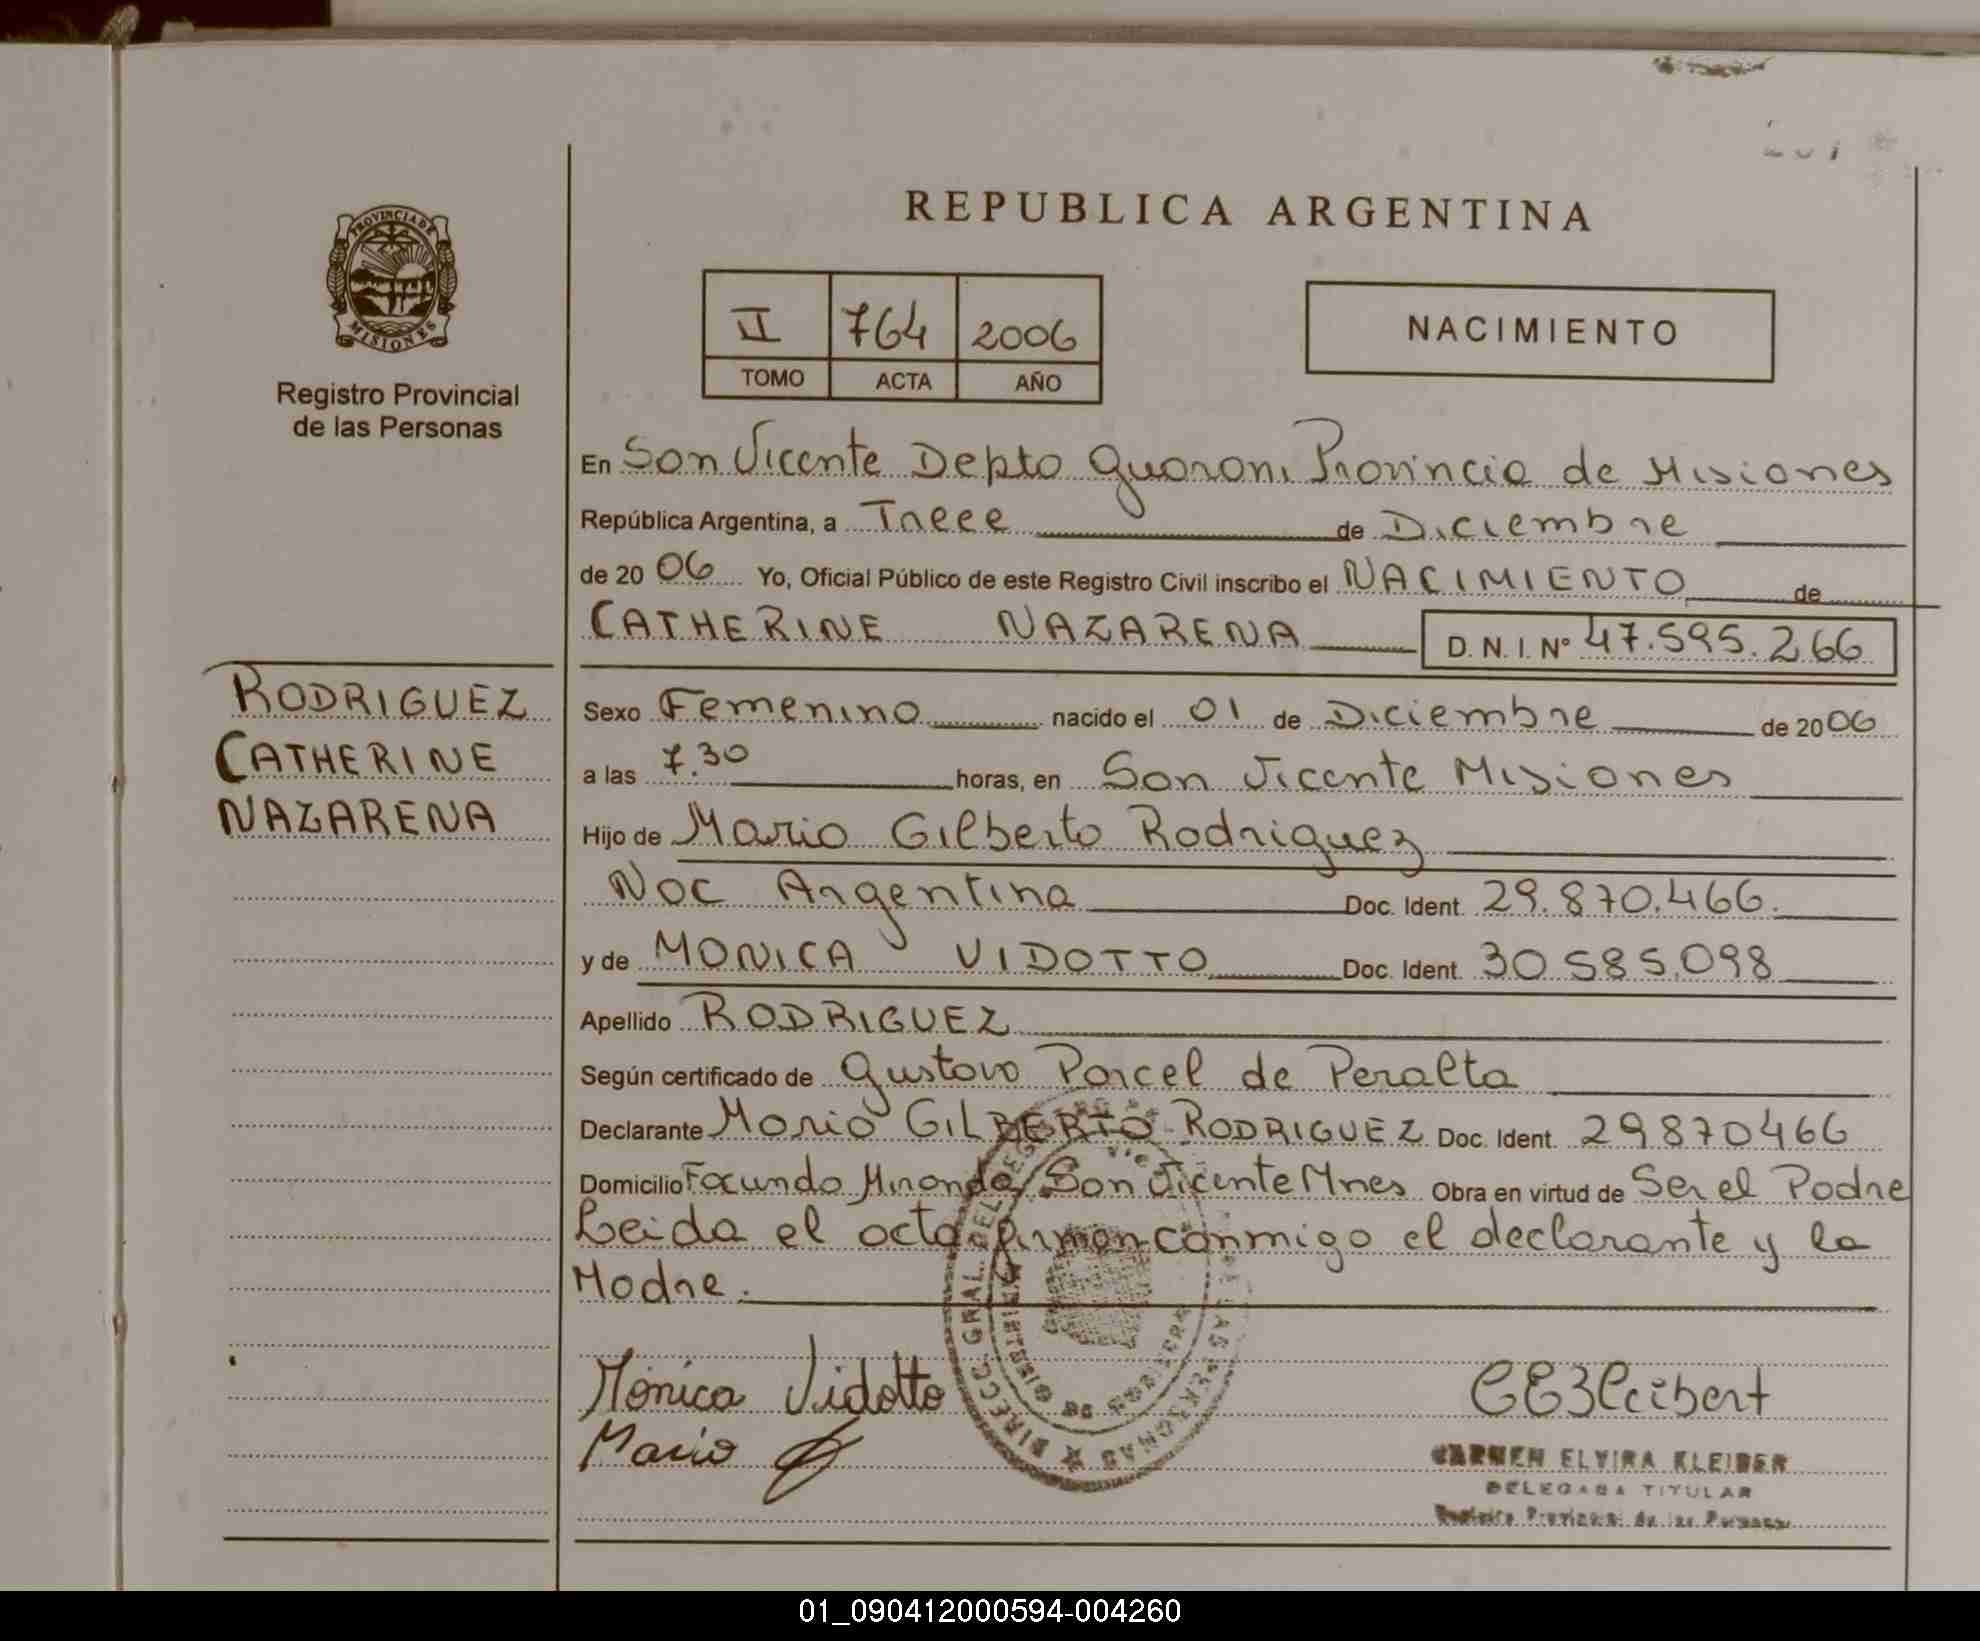 REPUBLICA ARGENTINA
PROVINCIA DE
MISIONES
Registro Provincial
de las Personas
II 764 2006
TOMO ACTA AÑO
NACIMIENTO
En San Vicente Depto Guarani Provincia de Misiones
República Argentina, a Trece de Diciembre
de 2006 Yo, Oficial Público de este Registro Civil inscribo el NACIMIENTO de
CATHERINE NAZARENA D. N. I. Nº 47.595.266
RODRIGUEZ
CATHERINE
NAZARENA
Sexo Femenino nacido el 01 de Diciembre de 2006
a las 7.30 horas, en San Vicente Misiones
Hijo de Mario Gilberto Rodriguez
Nac Argentina Doc. Ident. 29.870.466.
y de MONICA VIDOTTO Doc. Ident. 30585.098
Apellido RODRIGUEZ
Según certificado de Gustavo Porcel de Peralta
Declarante Mario GILBERTO RODRIGUEZ Doc. Ident. 29870466
Domicilio Facundo Miranda San Vicente Mnes Obra en virtud de Ser el Padre
Leida el acta firman conmigo el declarante y la
Madre.
Mónica Vidotto
Mario
CARMEN ELVIRA KLEIBER
DELEGADA TITULAR
Registro Provincial de las Personas
01_090412000594-004260